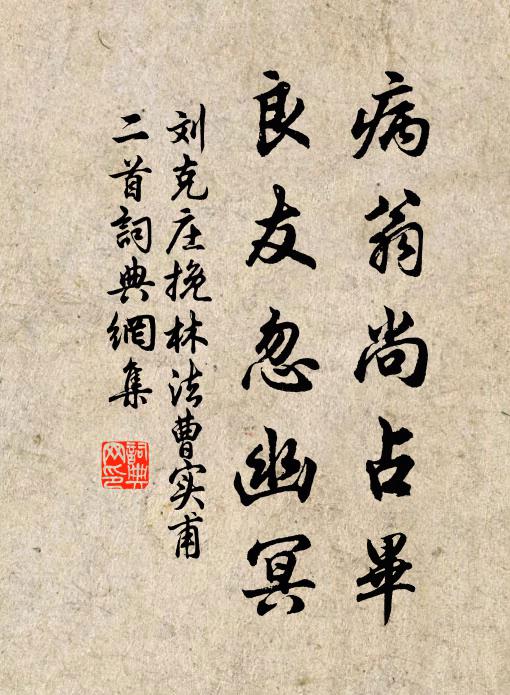 病翁尚占畢
良友忽幽冥
刘克庄挽林法曹实甫
二首詞典網集
詞典
网印